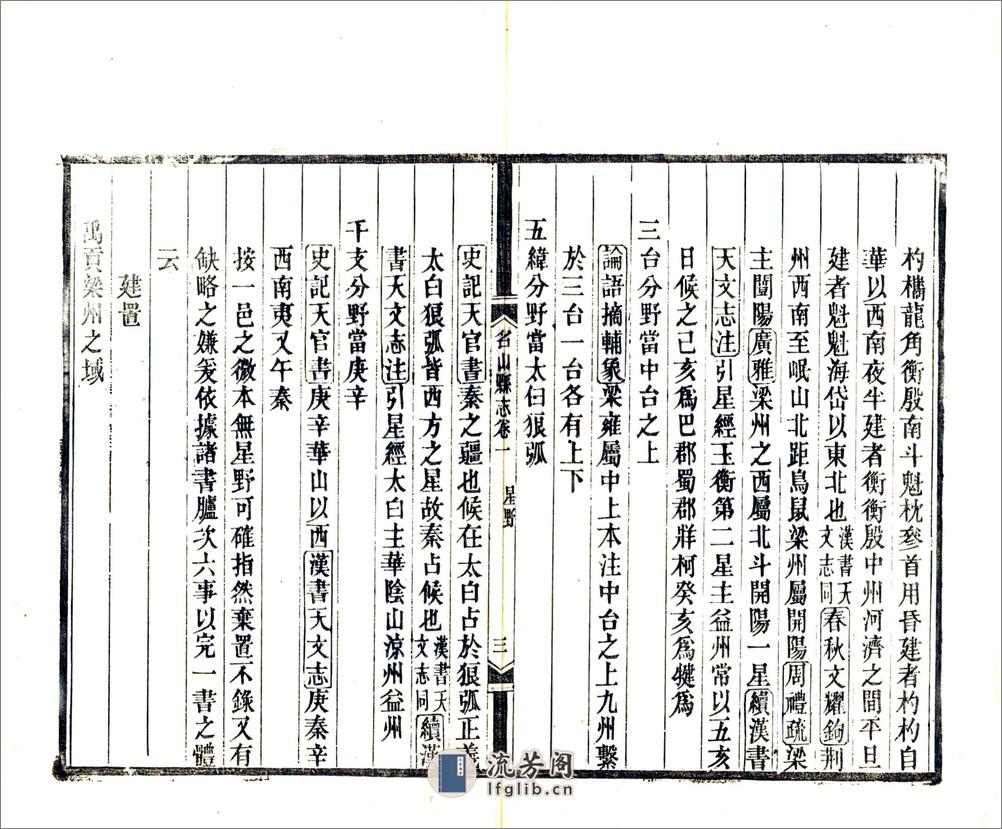 杓攜龍角衡殷南斗魁枕參首用昏建者杓杓自
華以西南夜半建者衡衡殷中州河濟之間平旦
建者魁魁海岱以東北也漢書天文志同春秋文耀鉤荆
州西南至岷山北距鳥鼠梁州屬開陽周禮疏梁
主開陽廣雅梁州之西屬北斗開陽一星續漢書
天文志注引星經玉衡第二星主益州常以五亥
日候之己亥爲巴郡蜀郡牂柯癸亥爲犍爲
三台分野當中台之上
論語摘輔象梁雍屬中上本注中台之上九州繫
於三台一台各有上下
五緯分野當太白狼弧
史記天官書秦之疆也候在太白占於狼弧正義
太白狼弧皆西方之星故秦占候也漢書天文志同續漢
書天文志注引星經太白主華陰山涼州益州
干支分野當庚辛
史記天官書庚辛華山以西漢書天文志庚秦辛
西南夷又午秦
按一邑之微本無星野可確指然棄置不錄又有
缺略之嫌爰依據諸書臚次六事以完一書之體
云
建置
禹貢梁州之域
名山縣志卷一 星野 三
流芳阁
lfglib.cn